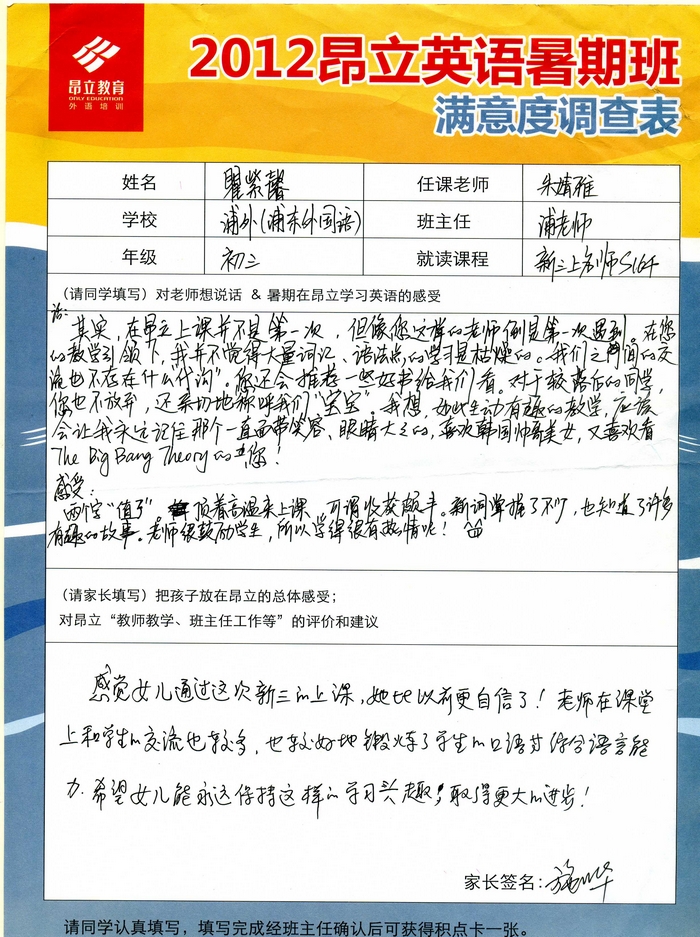 昂立教育
ONLY EDUCATION
外语培训
2012昂立英语暑期班
满意度调查表
姓名 瞿紫馨 任课老师 朱婧雅
学校 浦外(浦东外国语) 班主任 浦老师
年级 初三 就读课程 新三上名师S164
(请同学填写)对老师想说话 & 暑期在昂立学习英语的感受
话:
其实,在昂立上课并不是第一次,但像您这样的老师倒是第一次遇到。在您
的教学引领下,我并不觉得大量词汇、语法点的学习是枯燥的。我们之间的交
流也不存在什么代沟",您还会推荐一些好书给我们看。对于较落后的同学,
您也不放弃,还亲切地称呼我们"宝宝"。我想,如此生动有趣的教学,应该
会让我永远记住那个一直面带笑容、眼睛大大的,喜欢韩国帅哥美女,又喜欢看
The Big Bang Theory的您!
感受:
两个字"值了"。顶着高温来上课,可谓收获颇丰。新词掌握了不少,也知道了许多
有趣的故事。老师很鼓励学生,所以学得很有热情呢!
(请家长填写)把孩子放在昂立的总体感受;
对昂立“教师教学、班主任工作等”的评价和建议
感觉女儿通过这次新三的上课,她比以前更自信了!老师在课堂
上和学生的交流也较多,也较好地锻炼了学生的口语及综合语言能
力.希望女儿能永远保持这样的学习兴趣,取得更大的进步!
家长签名:
请同学认真填写,填写完成经班主任确认后可获得积点卡一张。